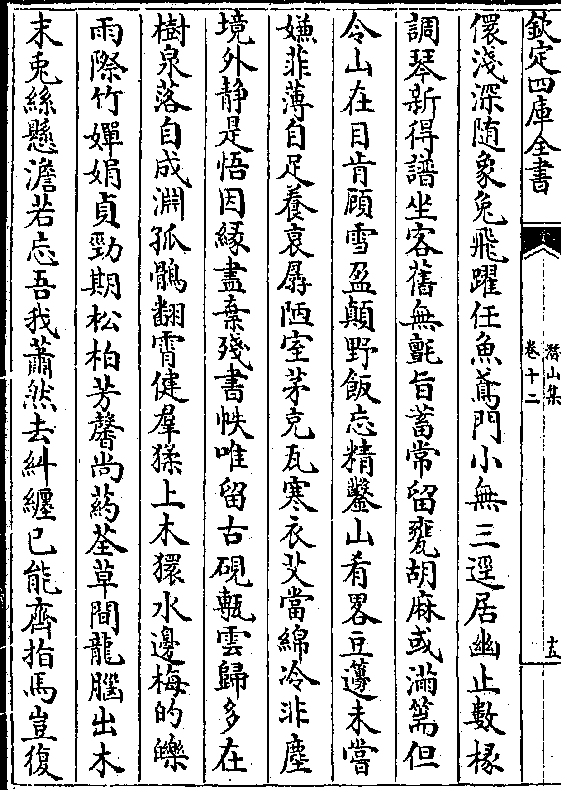 欽定四庫全書
潛山集
卷十二
十五
儇淺深随象兔飛躍任魚鳶門小無三逕居幽止數椽
調琴新得譜坐客舊無氈旨蓄常留甕胡麻或滿篅但
令山在目肯顧雪盈顛野飯忘精鑿山肴畧豆籩未嘗
嫌菲薄自足養衰孱陋室茅充瓦寒衣艾當綿冷非塵
境外静是悟因縁盡棄殘書帙唯留古硯甎雲歸多在
樹泉落自成淵孤鶻翻霄健羣猱上木獧水邊梅的皪
雨際竹嬋娟貞勁期松柏芳馨尚葯荃草間龍腦出木
末兎絲懸澹若忘吾我蕭然去糾纒已能齊指馬豈復